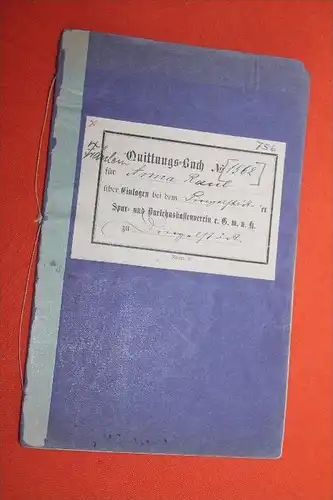 786
Quittungs-Buch № [1568]
Fräulein
für Anna Raul
über Einlagen bei dem Dingelstädt er
Spar- und Darlehnskassenverein e. G. m. u. H.
zu Dingelstädt.